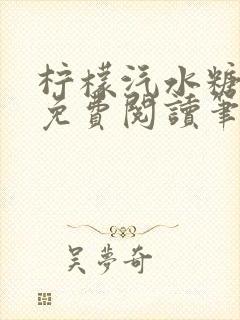 柠檬汽水糖
免費閱讀筆
吴夢奇